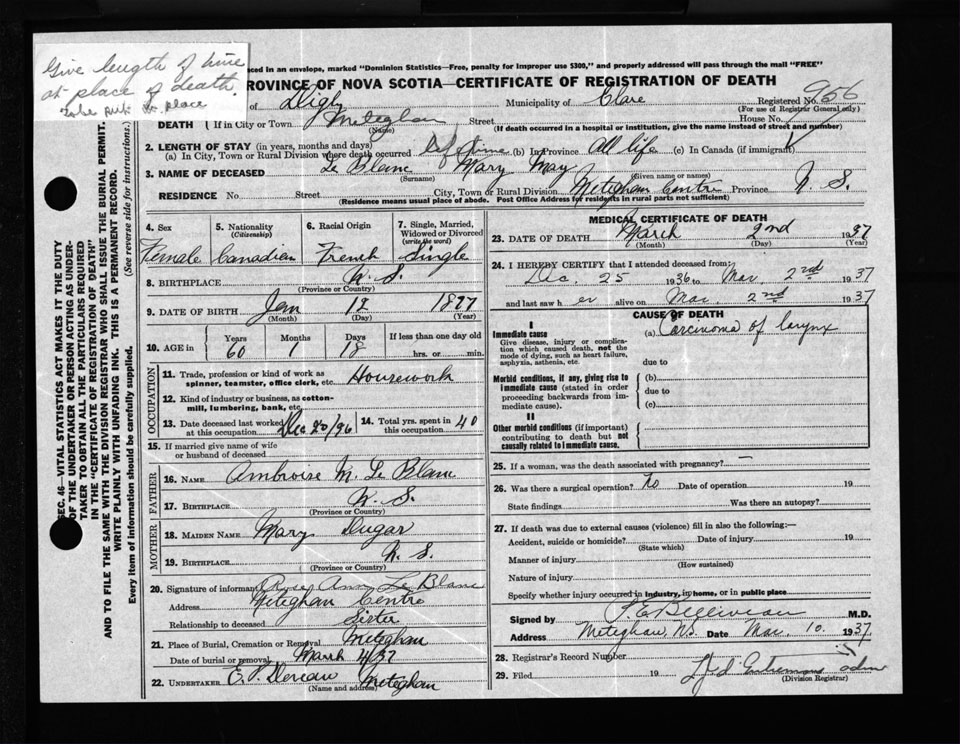 Give length of time
at place of death.
...ced in an envelope, marked "Dominion Statistics—Free, penalty for improper use $300," and properly addressed will pass through the mail "FREE"
PROVINCE OF NOVA SCOTIA—CERTIFICATE OF REGISTRATION OF DEATH
of Digby Municipality of Clare Registered No. 956
(For use of Registrar General only)
DEATH (If in City or Town Meteghan Street House No.
(Name) (If death occurred in a hospital or institution, give the name instead of street and number)
2. LENGTH OF STAY (in years, months and days)
(a) In City, Town or Rural Division where death occurred Lifetime (b) In Province All life (c) In Canada (if immigrant)
3. NAME OF DECEASED Le Blanc Mary May
(Surname) (Given name or names)
RESIDENCE No Street City, Town or Rural Division Meteghan Centre Province N. S.
(Residence means usual place of abode. Post Office Address for residents in rural parts not sufficient)
4. Sex 5. Nationality (Citizenship) 6. Racial Origin 7. Single, Married, Widowed or Divorced (write the word)
Female Canadian French Single
8. BIRTHPLACE N. S.
(Province or Country)
9. DATE OF BIRTH Jan 12 1877
(Month) (Day) (Year)
10. AGE Years Months Days If less than one day old
60 1 18 hrs. or min.
OCCUPATION
11. Trade, profession or kind of work as spinner, teamster, office clerk, etc. Housework
12. Kind of industry or business, as cotton-mill, lumbering, bank, etc.
13. Date deceased last worked at this occupation Dec 20/36 14. Total yrs. spent in this occupation 40
15. If married give name of wife or husband of deceased
FATHER
16. NAME Ambroise M. Le Blanc
17. BIRTHPLACE N. S.
(Province or Country)
MOTHER
18. MAIDEN NAME Mary Dugas
19. BIRTHPLACE N. S.
(Province or Country)
20. Signature of informant Rose Ann Le Blanc
Address Meteghan Centre
Relationship to deceased Sister
21. Place of Burial, Cremation or Removal Meteghan
Date of burial or removal March 4/37
22. UNDERTAKER Meteghan
(Name and address)
MEDICAL CERTIFICATE OF DEATH
23. DATE OF DEATH March 2nd 1937
(Month) (Day) (Year)
24. I HEREBY CERTIFY that I attended deceased from:
Dec. 25 1936 to Mar. 2nd 1937
and last saw h er alive on Mar. 2nd 1937
CAUSE OF DEATH
I
Immediate cause (a) Carcinoma of larynx
Give disease, injury or complication which caused death, not the mode of dying, such as heart failure, asphyxia, asthenia, etc. due to
Morbid conditions, if any, giving rise to immediate cause (stated in order proceeding backwards from immediate cause). (b)
due to
(c)
II
Other morbid conditions (if important) contributing to death but not causally related to immediate cause.
25. If a woman, was the death associated with pregnancy? —
26. Was there a surgical operation? No Date of operation 19
State findings Was there an autopsy?
27. If death was due to external causes (violence) fill in also the following:—
Accident, suicide or homicide? Date of injury 19
(State which)
Manner of injury
(How sustained)
Nature of injury
Specify whether injury occurred in industry, in home, or in public place
Signed by M.D.
Address Meteghan, N.S. Date Mar. 10. 1937
28. Registrar's Record Number
29. Filed 19
(Division Registrar)
SEC. 46—VITAL STATISTICS ACT MAKES IT THE DUTY
OF THE UNDERTAKER OR PERSON ACTING AS UNDER-
TAKER TO OBTAIN ALL THE PARTICULARS REQUIRED
IN THE "CERTIFICATE OF REGISTRATION OF DEATH"
AND TO FILE THE SAME WITH THE DIVISION REGISTRAR WHO SHALL ISSUE THE BURIAL PERMIT.
WRITE PLAINLY WITH UNFADING INK. THIS IS A PERMANENT RECORD.
Every item of information should be carefully supplied. (See reverse side for instructions.)